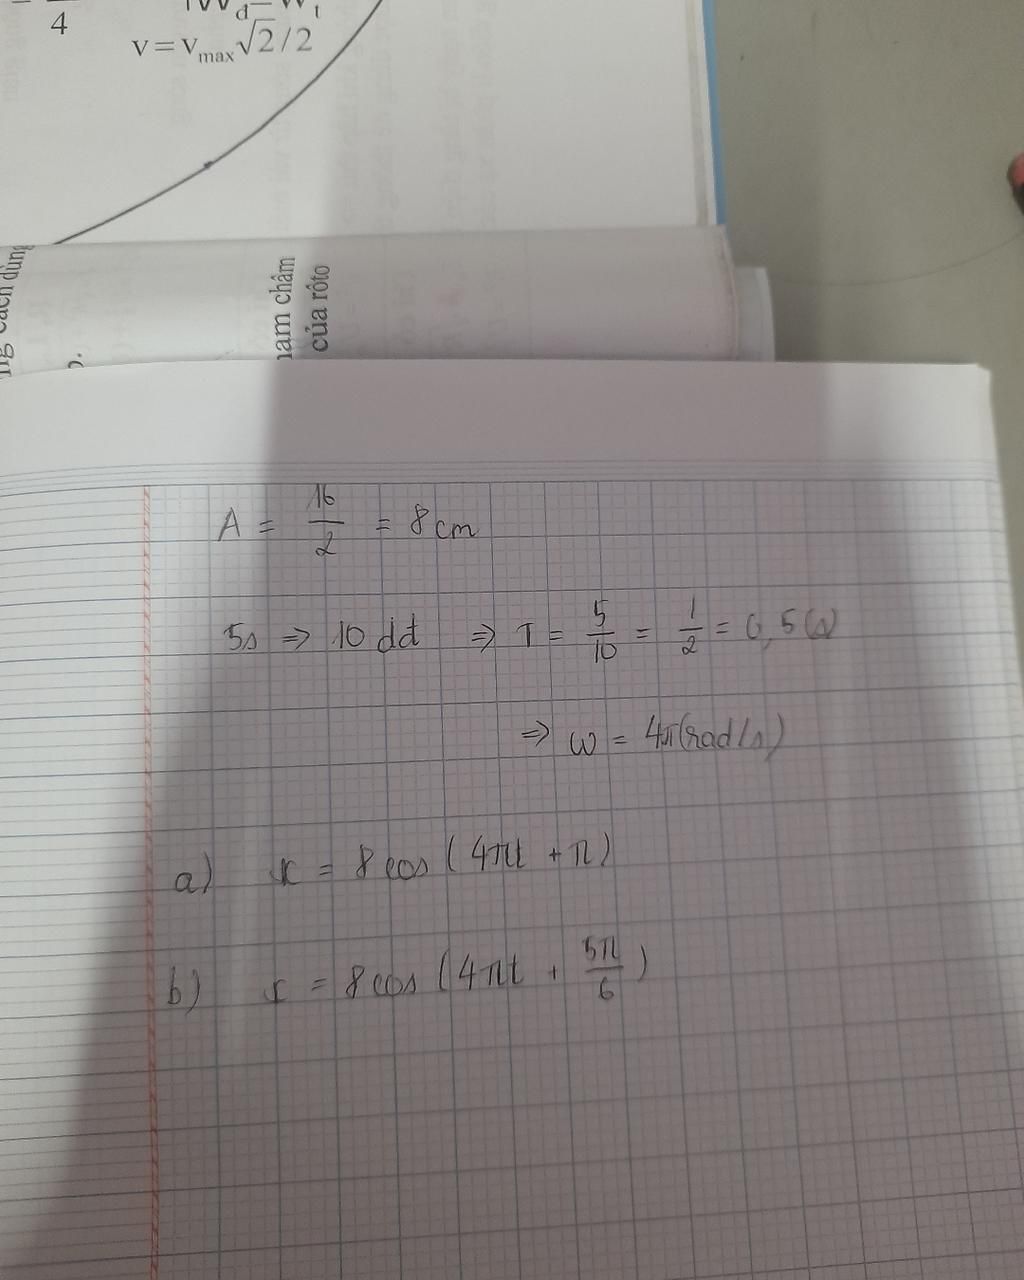 4
W_d = W_t
v = v_max√2/2
cách dùng
nam châm
của rôto
A = 16/2 = 8 cm
5s => 10 dđ => T = 5/10 = 1/2 = 0,5 (s)
=> ω = 4π (rad/s)
a) x = 8 cos (4πt + π)
b) x = 8 cos (4πt + 5π/6)